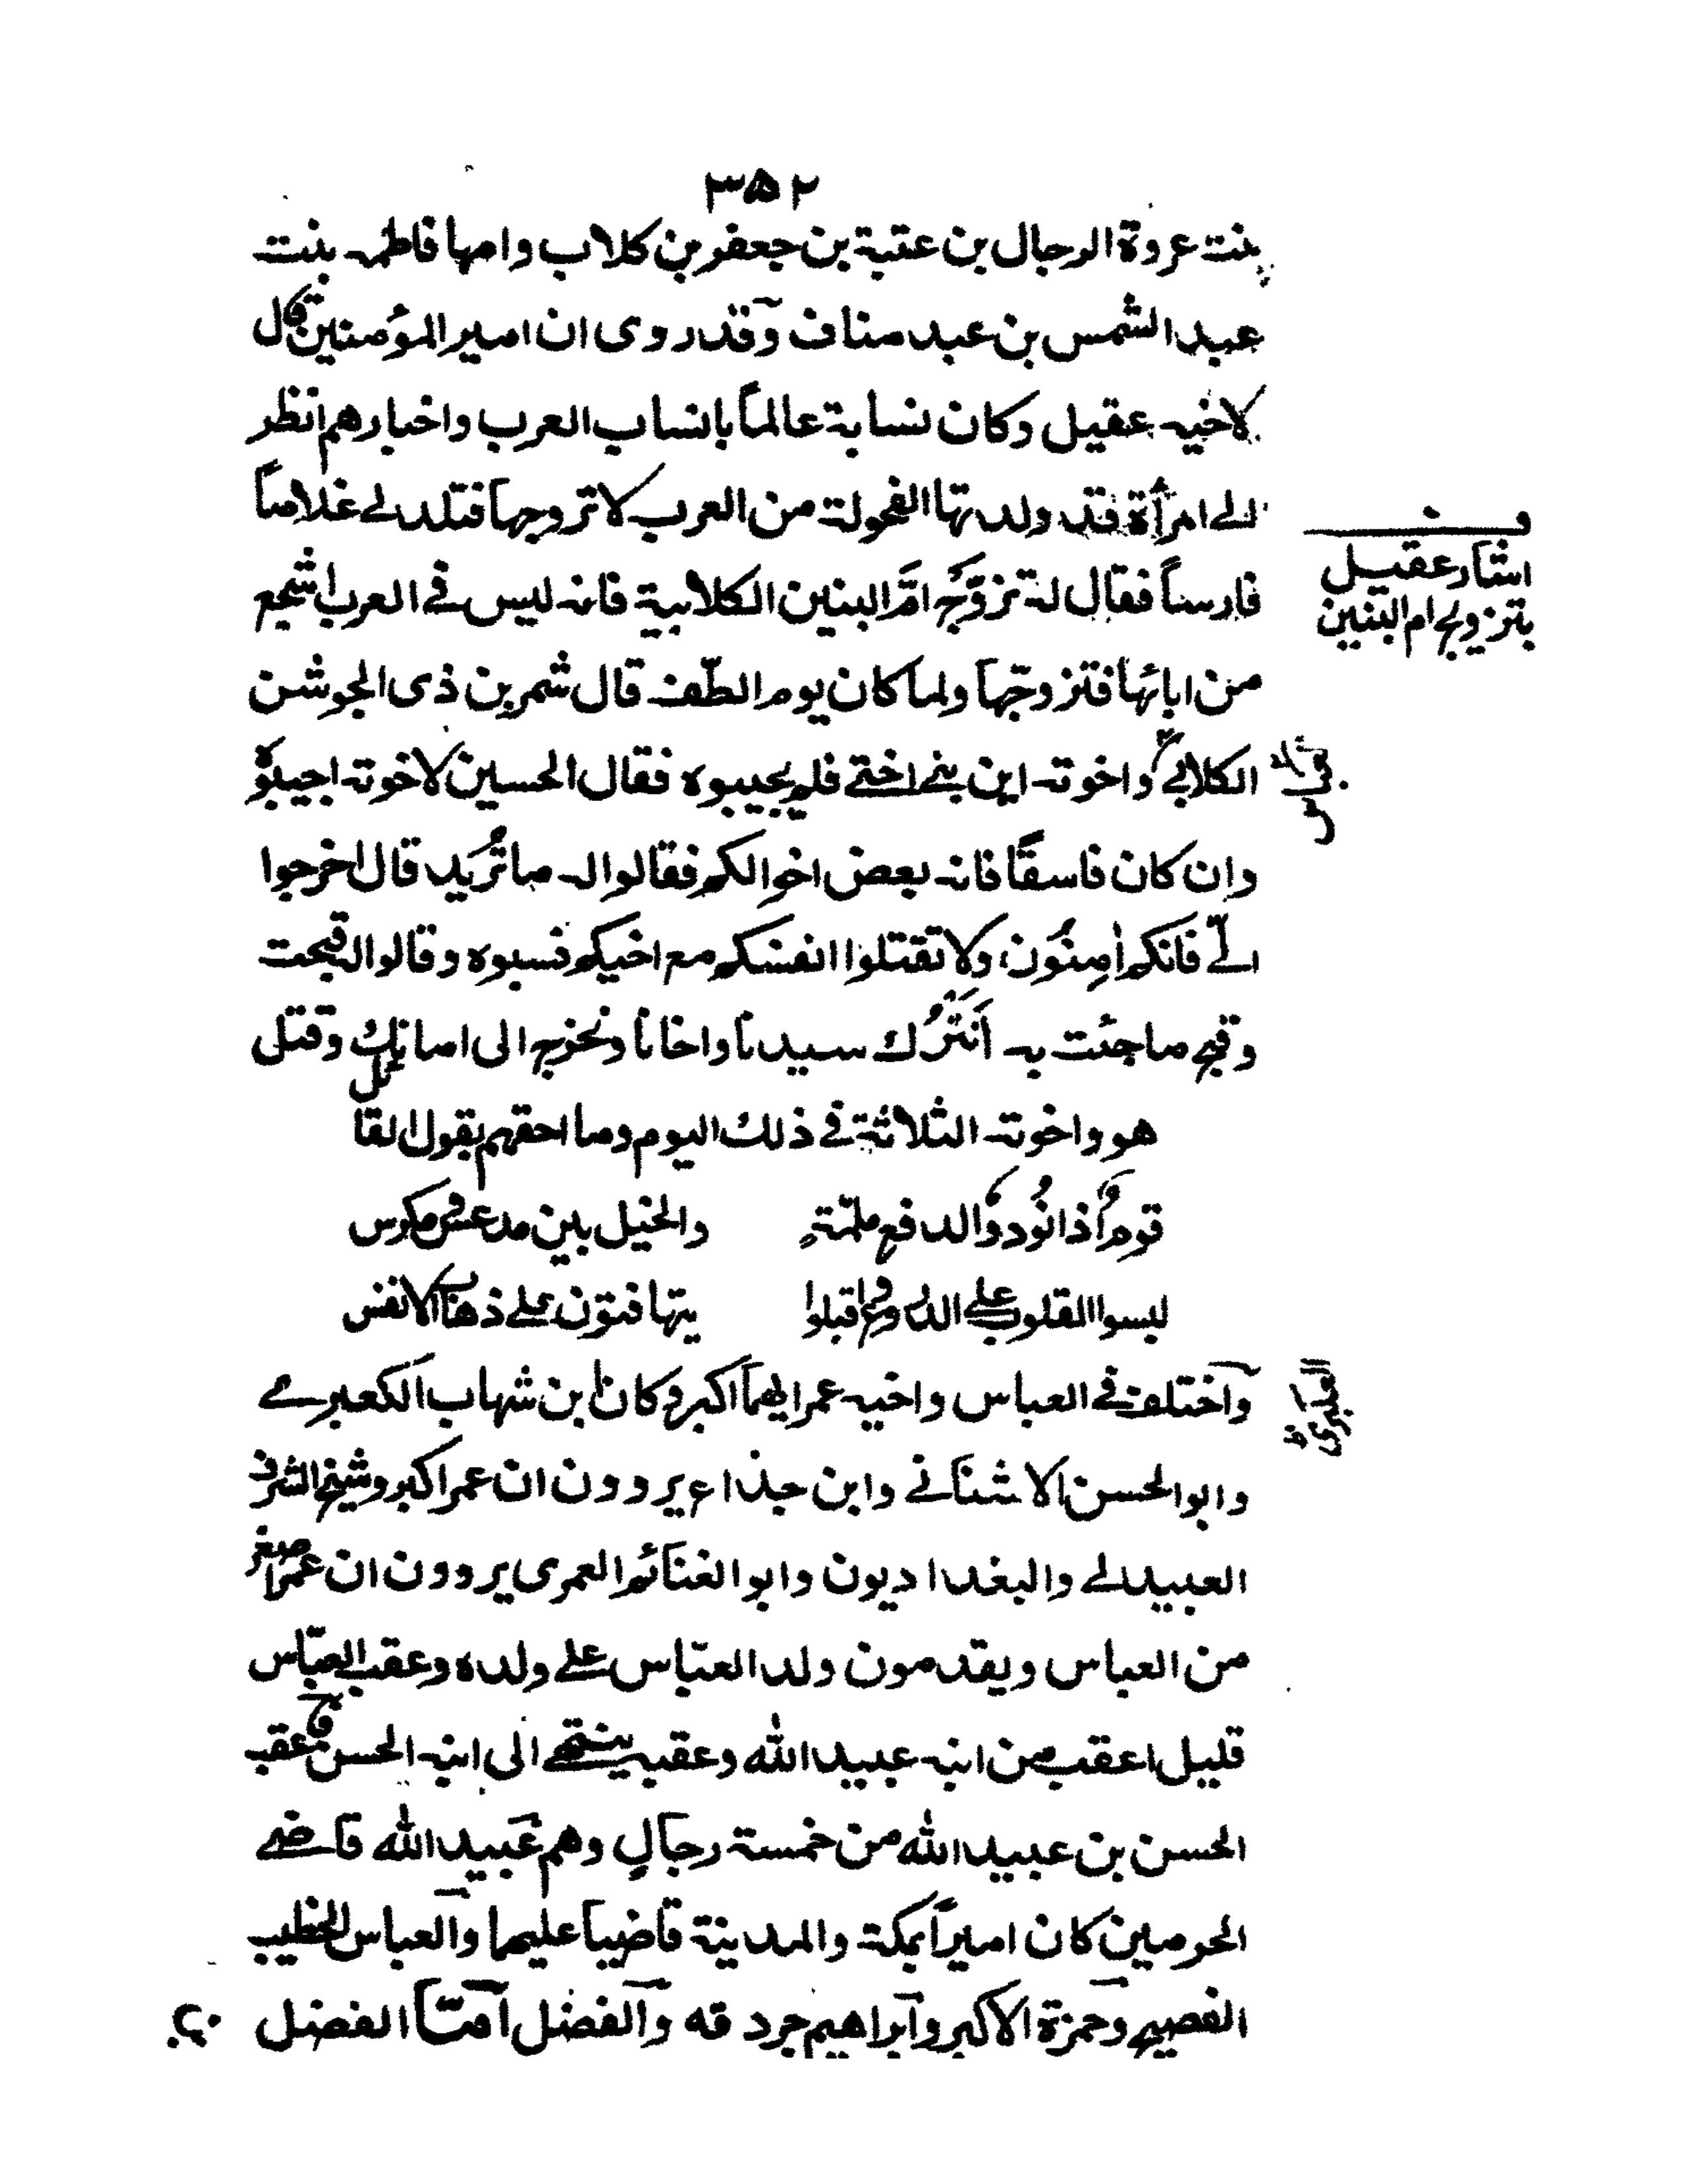 ٣٥٢
بنت عروة الرجال بن عتبة بن جعفر بن كلاب وامها فاطمه بنت
عبد الشمس بن عبد مناف وقد روى ان امير المؤمنين قال
لاخيه عقيل وكان نسابة عالماً بانساب العرب واخبارهم انظر
الى امرأة قد ولدتها الفحولة من العرب لاتزوجها فتلد لى غلاماً
فارساً فقال له تزوَّج امَّ البنين الكلابية فانه ليس فى العرب اشجع
من ابائها فتزوجّها ولما كان يوم الطّف قال شمر بن ذى الجوشن
الكلابى واخوته اين بنى اختى فلم يجيبوه فقال الحسين لاخوته اجيبوه
وان كان فاسقًا فانه بعض اخوالكم فقالوا له ما تُريد قال اخرجوا
الىّ فانكم اٰمنون ولا تقتلوا انفسكم مع اخيكم فسبوه وقالوا له قبحت
وقبح ما جئت به أنترُك سيدنا واخانا ونخرج الى امانك وقتل
هو واخوته الثلاثة فى ذلك اليوم وما احقهم بقول القائل
قومٌ اذا نُودوا لدفع ملمّةٍ والخيل بين مدعس ومكردس
لبسوا القلوب على الدروع واقبلوا يتهافتون على ذهاب الانفس
واختلف فى العباس واخيه عمر ايهما اكبر وكان ابن شهاب الكعبرى
وابو الحسن الاشنانى وابن جذاع يروون ان عمر اكبر وشيخ الشرف
العبيدلى والبغداديون وابو الغنائم العمرى يروون ان عمر اصغر
من العباس ويقدمون ولد العبّاس على ولده وعقب العبّاس
قليل اعقب من ابنه عبيد الله وعقبه ينتهى الى ابنه الحسن فاعقب
الحسن بن عبيد الله من خمسة رجالٍ وهم عبيد الله قاضى
الحرمين كان اميراً بمكة والمدينة قاضياً عليهما والعباس الخطيب
الفصيح وحمزة الاكبر وابراهيم جردقه والفضل امّا الفضل
ف
اشار عقيل
بتزويج ام البنين
العكبرى